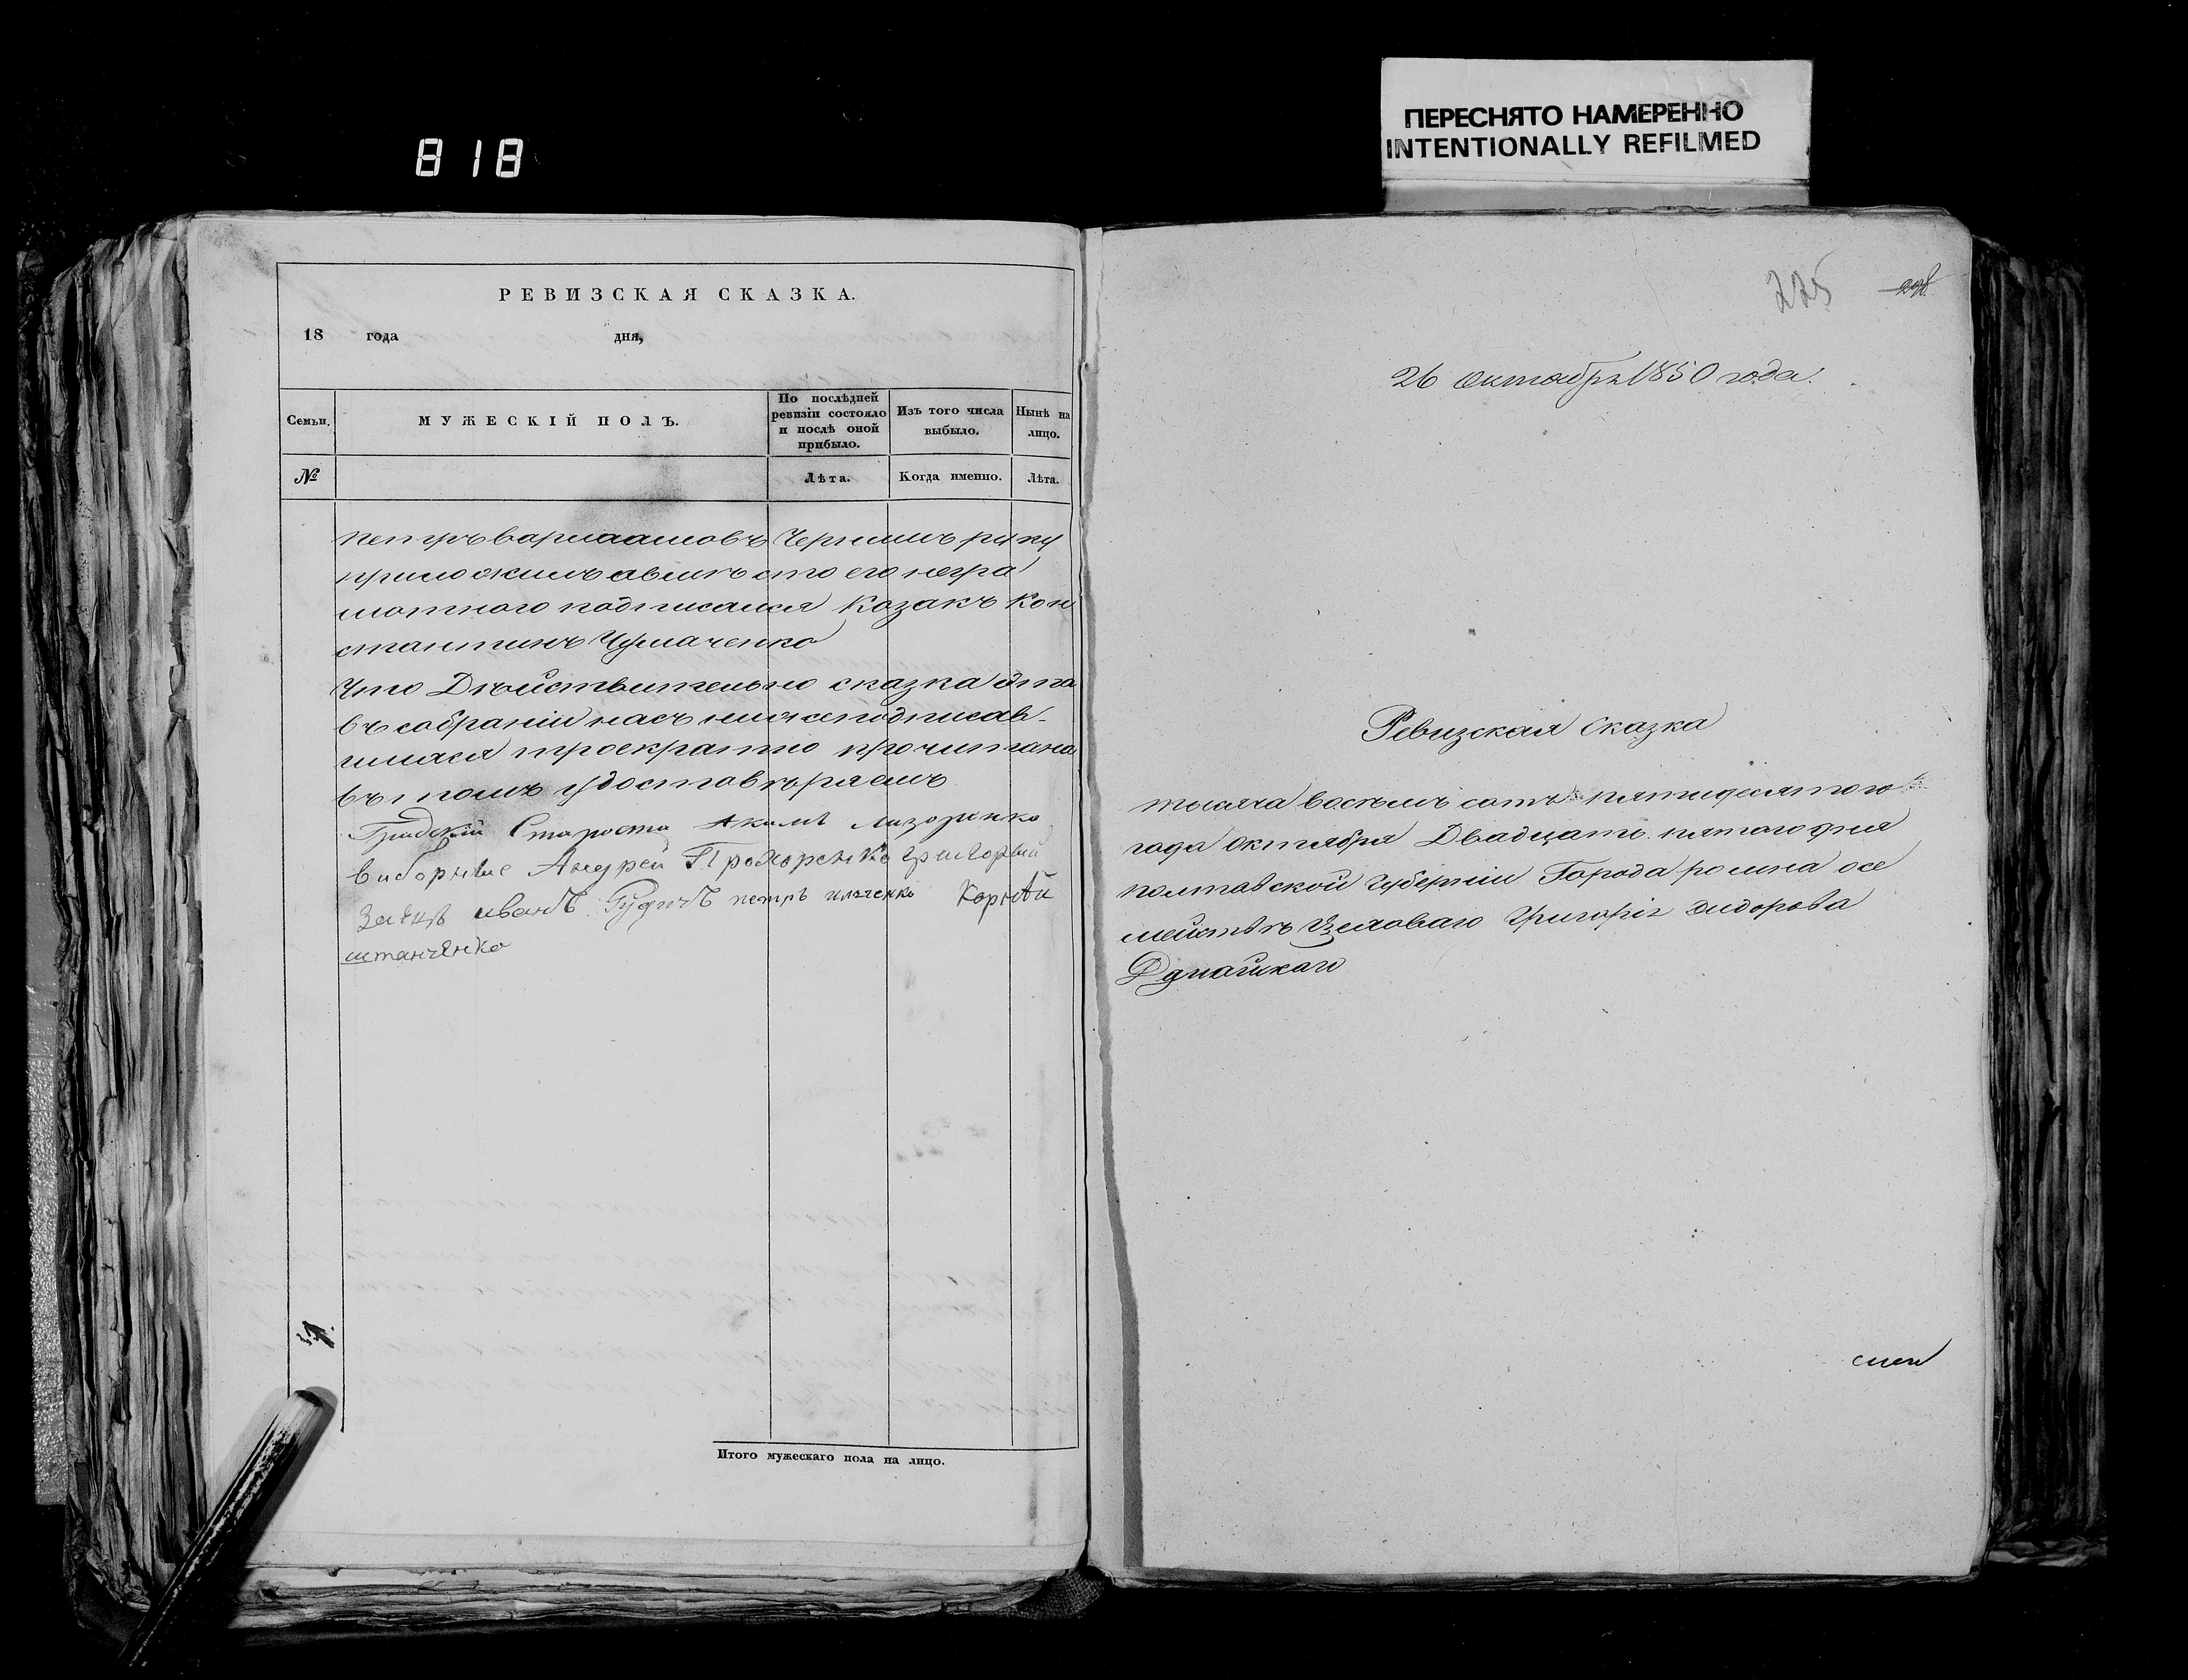 818
ПЕРЕСНЯТО НАМЕРЕННО
INTENTIONALLY REFILMED
РЕВИЗСКАЯ СКАЗКА.
18 года дня,
Семьи.
МУЖЕСКІЙ ПОЛЪ.
По послѣдней ревизіи состояло и послѣ оной прибыло.
Изъ того числа выбыло.
Нынѣ на лицо.
№
Лѣта.
Когда именно.
Лѣта.
Петръ Варлаамовъ руку
приложилъ авместо его негра
мотного подписался Козакъ Кон
стантинъ Чумаченко
Что Действительно сказка эта
въ собраніи насъ нижеподписав-
шихся троекратно прочитана
въ томъ удостовѣряемъ
Градскій Староста Акимъ Лазоренко
виборные Андрей Прохоренко Григорий
Заецъ иванъ Гудичъ петръ Корнѣй
штанченко
Итого мужескаго пола на лицо.
225
26 октабря 1850 года.
Ревизская Сказка
тысяча восемь сотъ пятидесятого
года Октября Двадцать пятого дня
полтавской Губерніи Города ромна осе